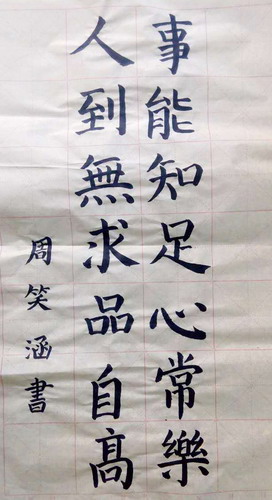 事能知足心常樂
人到無求品自高
周笑涵書